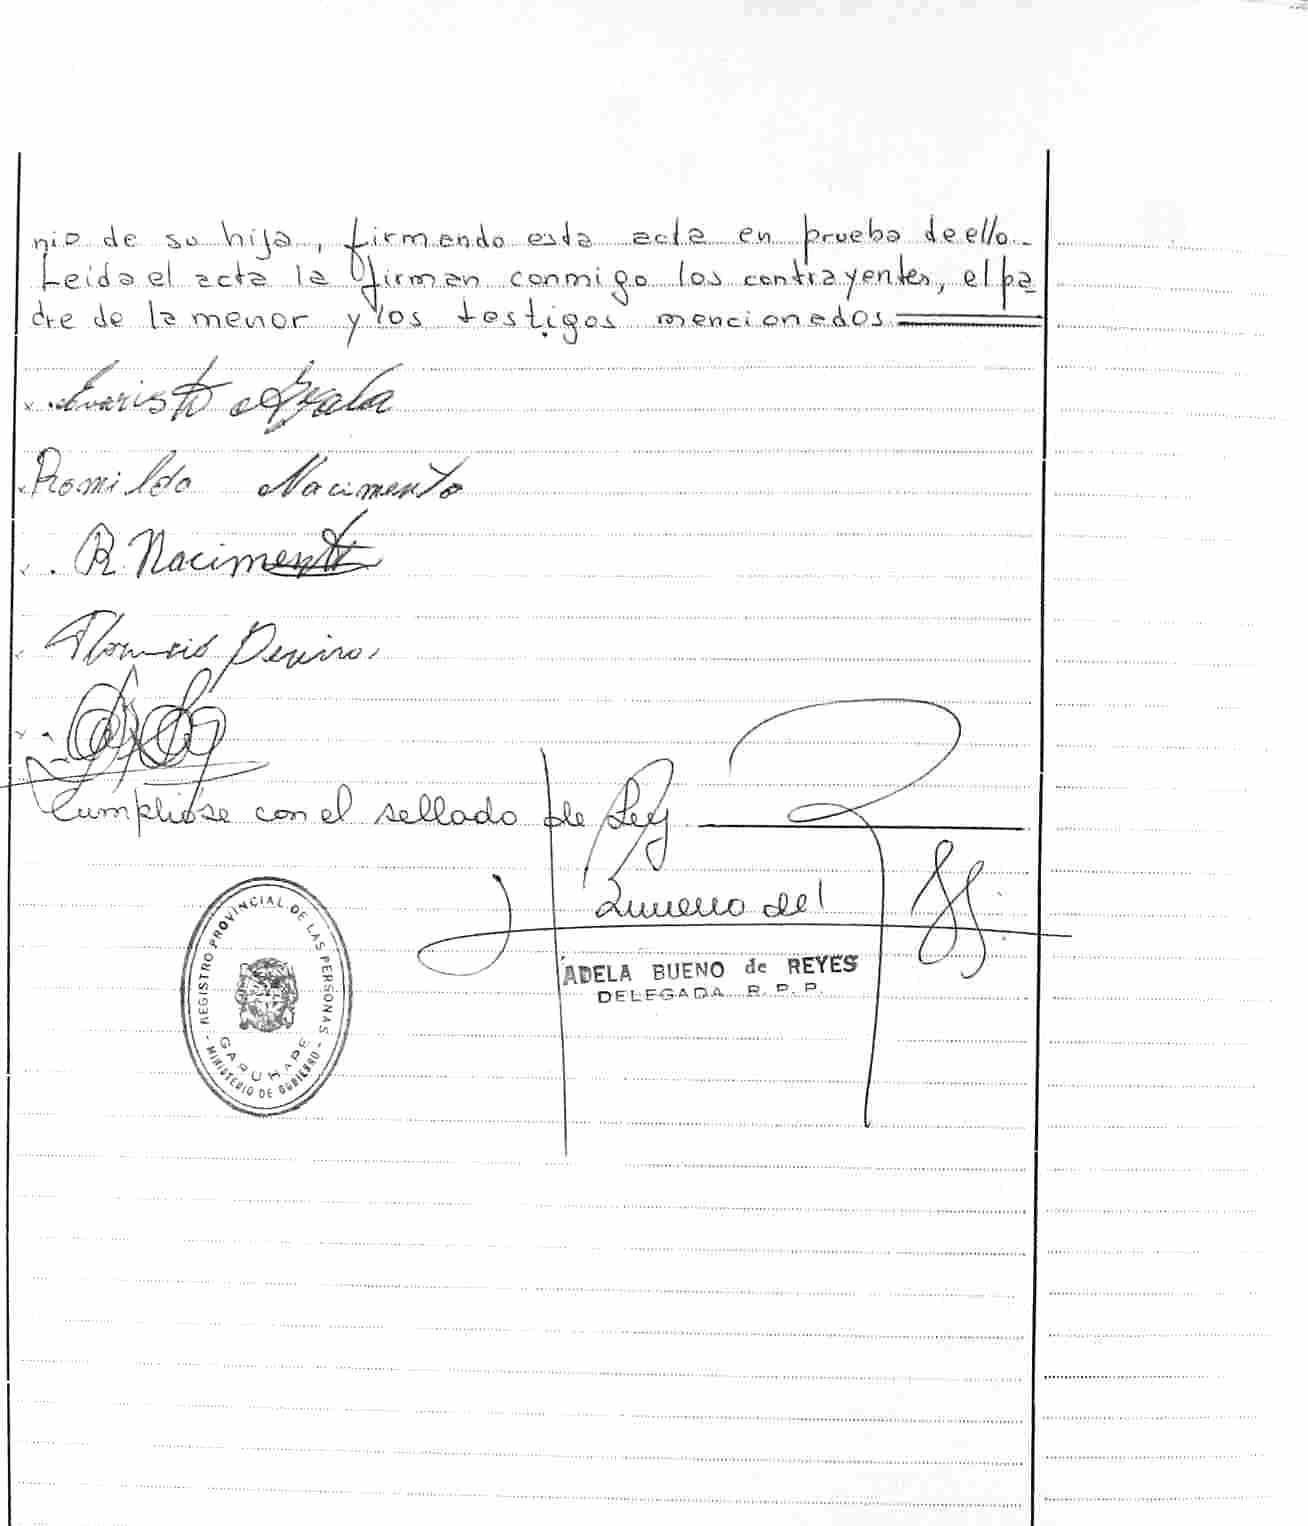 nio de su hija, firmando esta acta en prueba de ello.
Leida el acta la firman conmigo los contrayentes, el pa
dre de la menor y los testigos mencionados
Evaristo Ayala
Romildo Nacimento
R. Nacimento
Cumplióse con el sellado de Ley
ADELA BUENO de REYES
DELEGADA R. P. P.
REGISTRO PROVINCIAL DE LAS PERSONAS
GARUHAPE
- MINISTERIO DE GOBIERNO -